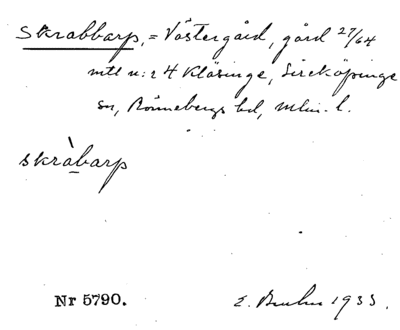 Skrabbarp, = Västergård, gård 27/64
mtl n:r 4 Kläsinge, Sireköpinge
sn, Rönnebergs hd, Mlm. l.
skràbarp
Nr 5790.
E. 1933.